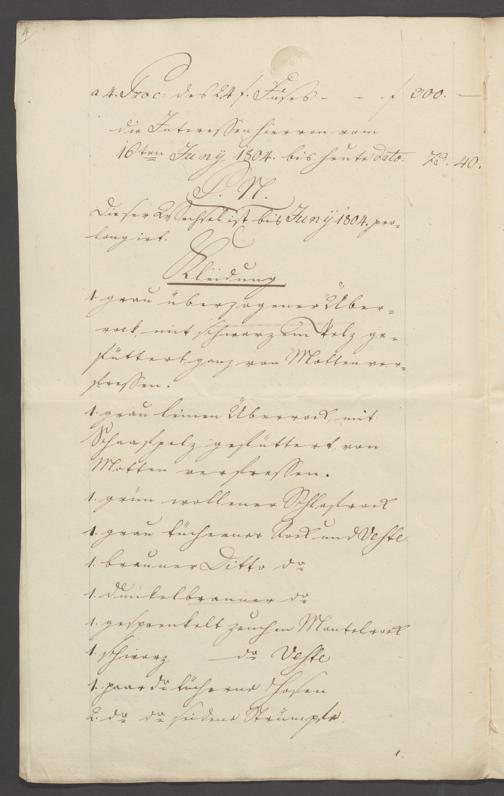 a 4. Proc: des 24 f. Fußes - - f 900. -
die Interessen hiervon vom
16ten Juny 1804. bis heute dato 73. 40.
P. N.
Dieser Wechsel ist bis Juny 1804. pro-
longirt.
Kleidung
1. grau überzogener Über-
rock, mit schwarzem Pelz ge-
füttert, ganz von Motten ver-
fressen.
1. grau leinen Überrock, mit
Schaafpelz gefüttert von
Motten verfressen.
1. grün wollener Schlafrock
1. grau tüchener Rock und Veste
1. brauner Ditto do
1. dunkelbrauner do
1. gesprenkelt zeuchen Mantelrock
1. schwarz do Veste
1. paar do tücherne Hosen
2. do do seidene Strümpfe.
1.